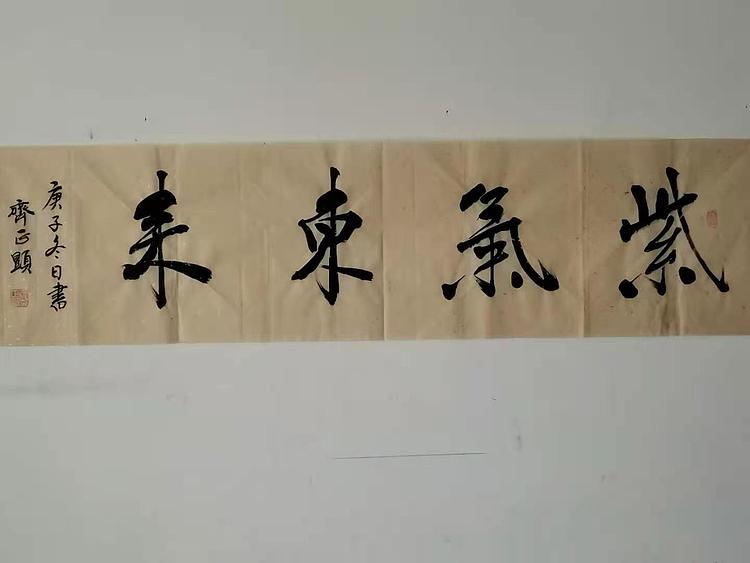 紫氣東来
庚子冬日書
齊正顕